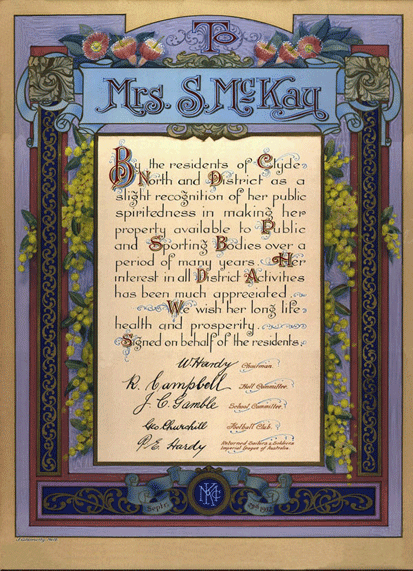 To
Mrs. S. McKay
By the residents of Clyde
North and District as a
slight recognition of her public
spiritedness in making her
property available to Public
and Sporting Bodies over a
period of many years. Her
interest in all District Activities
has been much appreciated.
We wish her long life
health and prosperity.
Signed on behalf of the residents.
W Hardy Chairman.
R. Campbell Hall Committee.
J. C. Gamble School Committee.
Geo. Churchill Football Club.
P. E. Hardy Returned Sailors & Soldiers
Imperial League of Australia.
Septr.